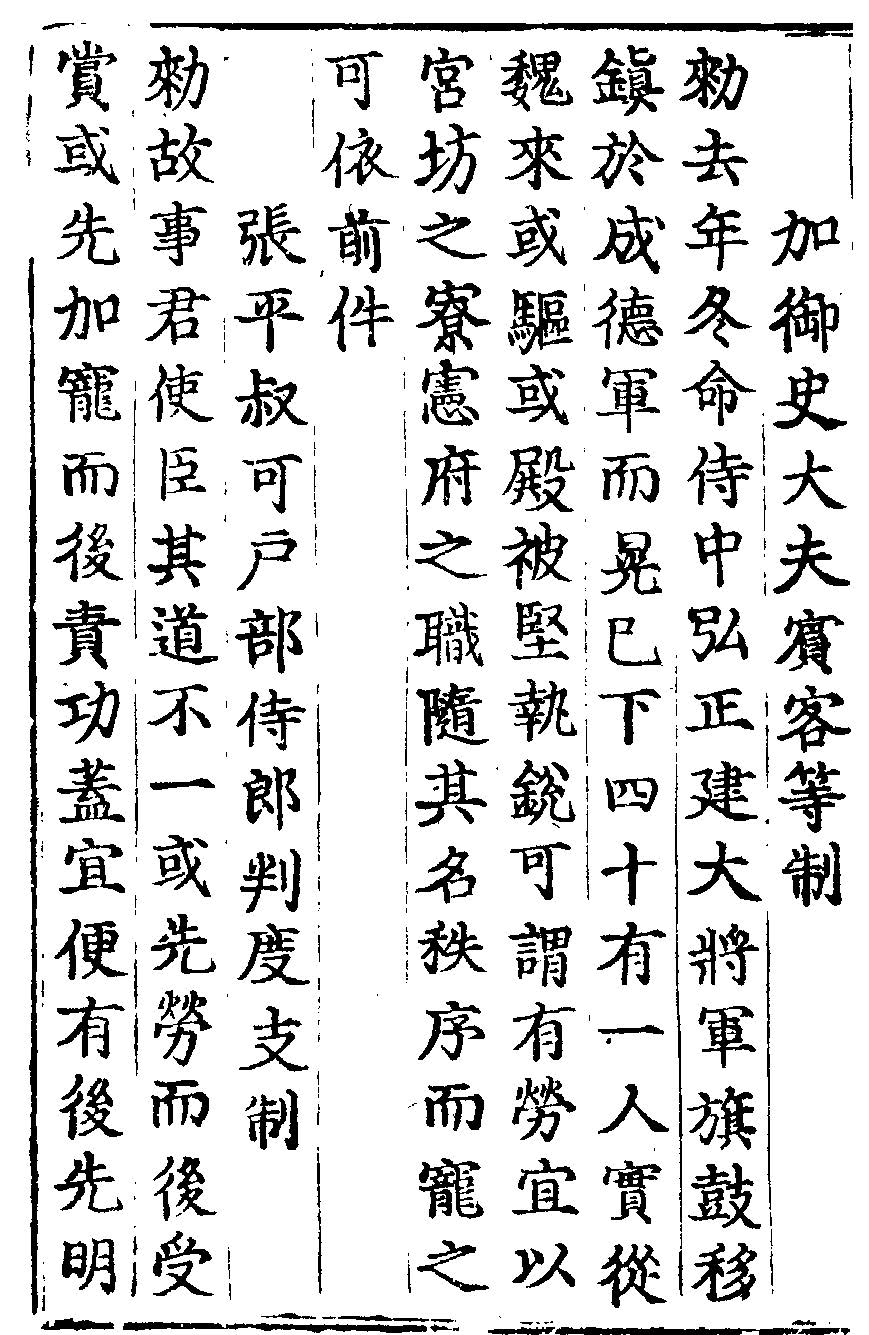 加御史大夫賓客等制
勑去年冬命侍中弘正建大將軍旗鼓移
鎮於成德軍而晃已下四十有一人實從
魏來或驅或殿被堅執銳可謂有勞宜以
宮坊之寮憲府之職隨其名秩序而寵之
可依前件
張平叔可戶部侍郎判度支制
勑故事君使臣其道不一或先勞而後受
賞或先加寵而後責功蓋宜便有後先明